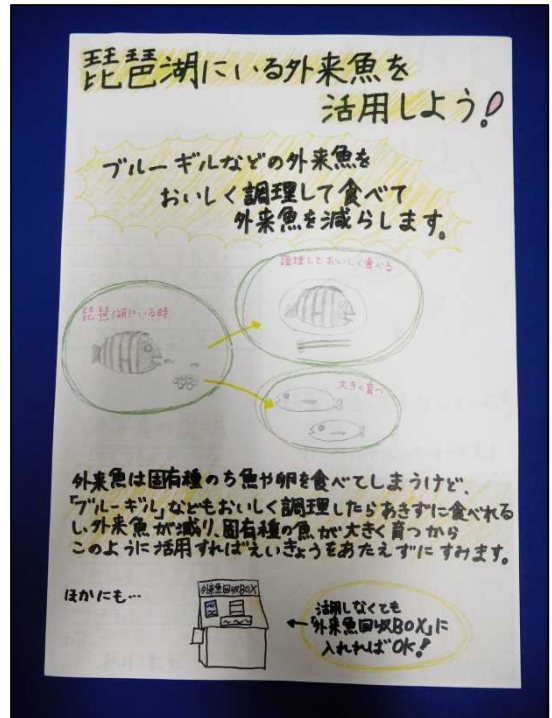 琵琶湖にいる外来魚を
活用しよう!
ブルーギルなどの外来魚を
おいしく調理して食べて
外来魚を減らします。
調理しておいしく食べる
琵琶湖にいる時
大きく育つ
外来魚は固有種のち魚や卵を食べてしまうけど、
「ブルーギル」などもおいしく調理したらあきずに食べれる
し、外来魚が減り、固有種の魚が大きく育つから
このように活用すればえいきょうをあたえずにすみます。
ほかにも…
外来魚回収BOX
活用しなくても
「外来魚回収BOX」に
入れればOK!